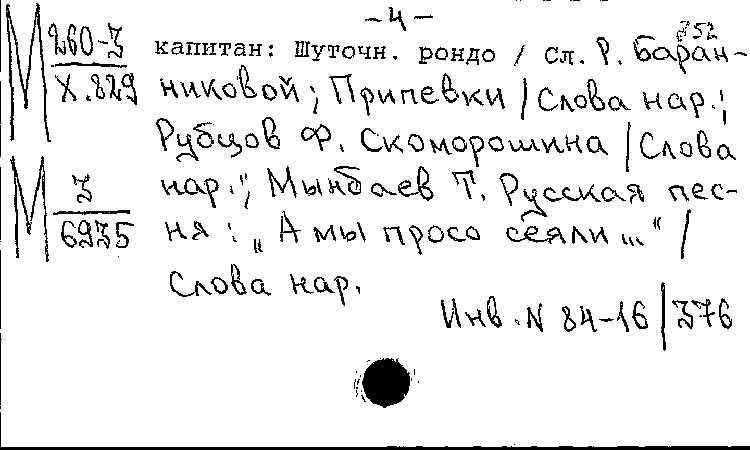 -4-
752
М 260-3
Х.829
капитан: Шуточн. рондо / сл. Р. Баран-
никовой; Припевки / Слова нар.;
Рубцов Ф. Скоморошина / Слова
М 3
6935
нар.; Мынбаев Т. Русская пес-
ня: „А мы просо сеяли..." /
Слова нар.
Инв. N 84-16/376